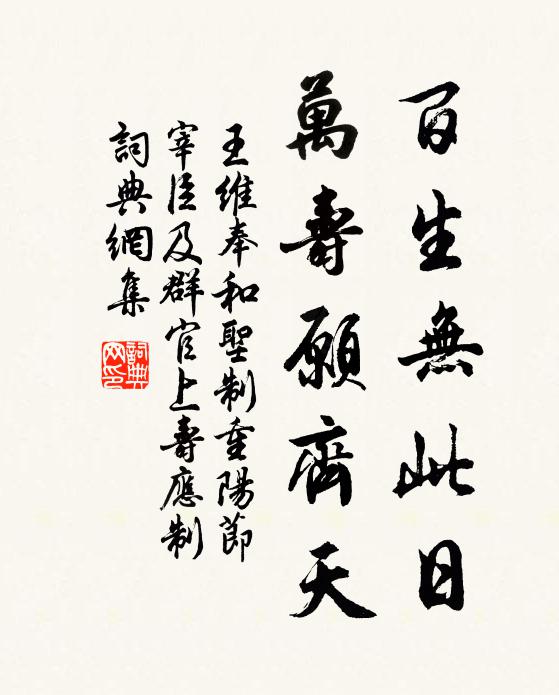 百生無此日
萬壽願齊天
王維奉和聖制重陽節
宰臣及群官上壽應制
詞典網集
詞典
网印